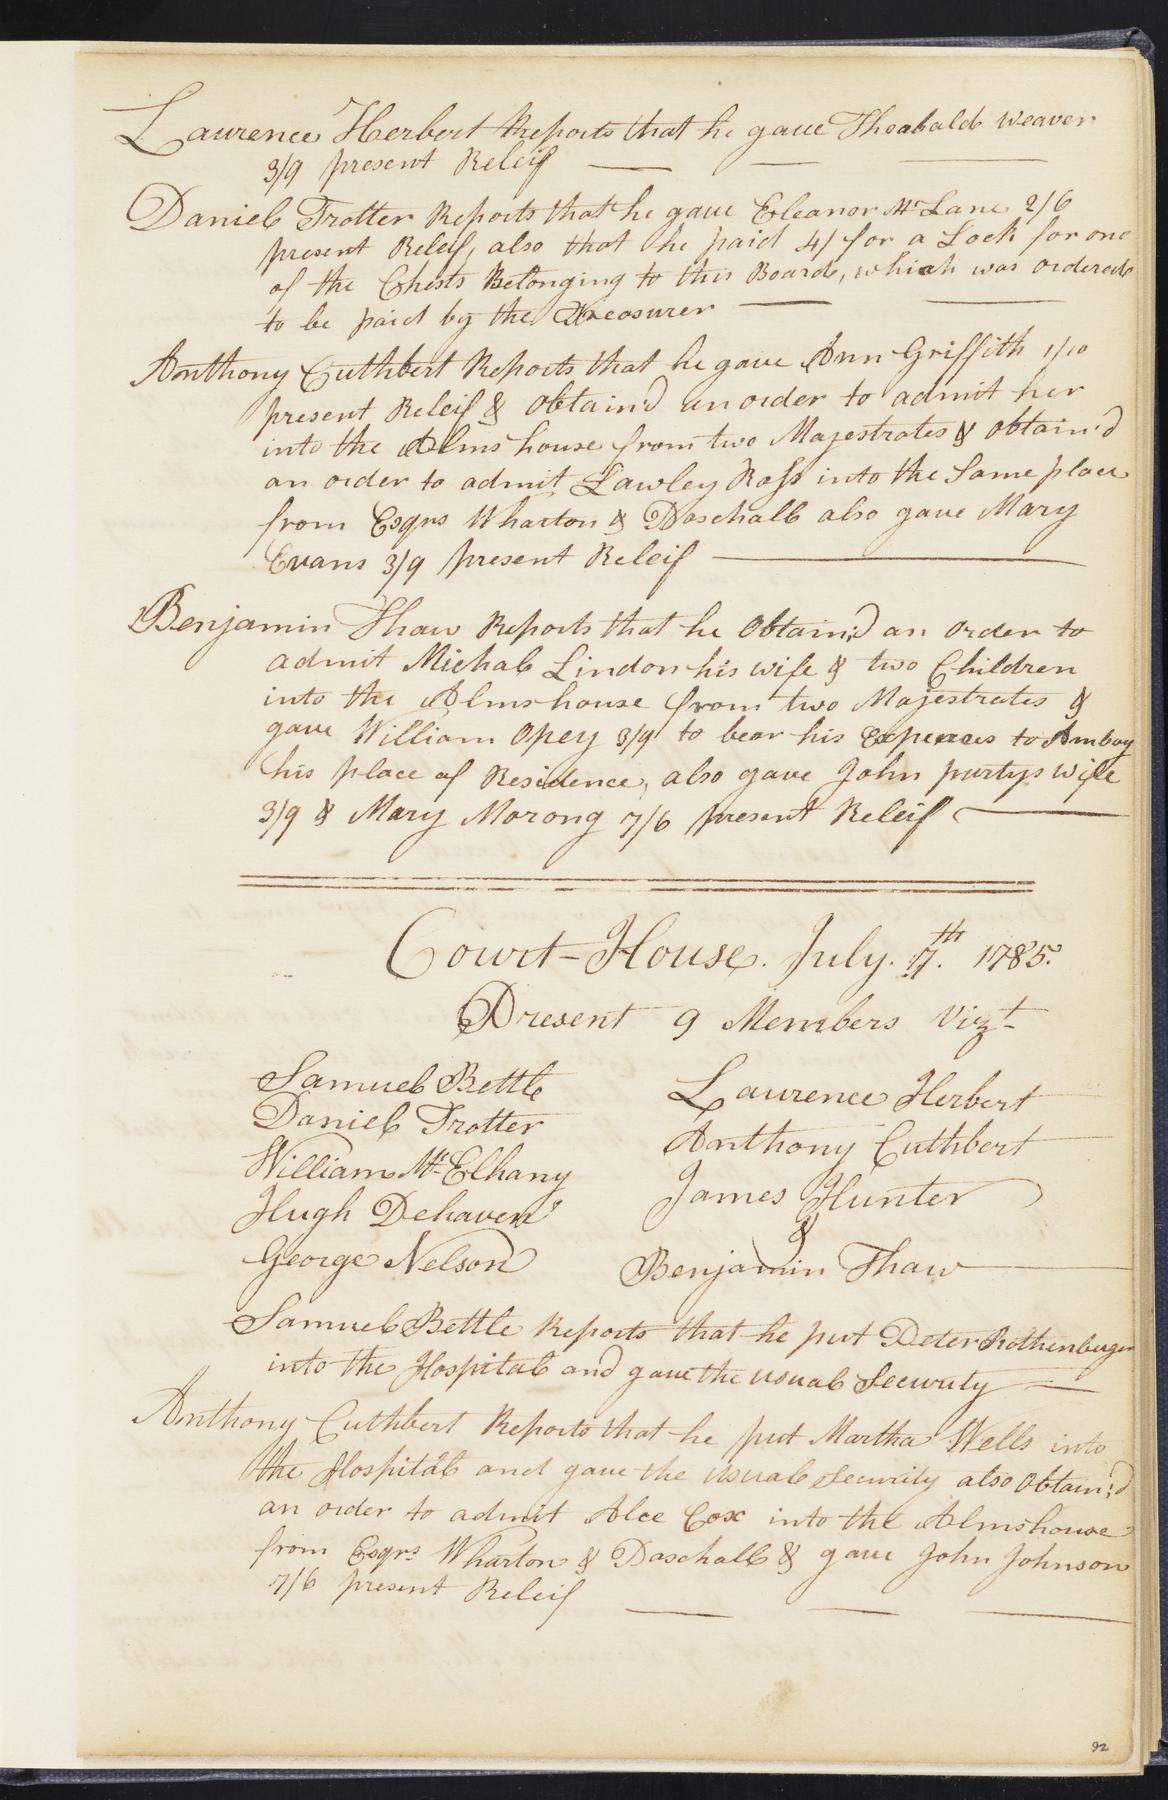 Laurence Herbert Reports that he gave Thoabald Weaver
3/9 present Releif
Daniel Trotter Reports that he gave Eleanor Mc Lane 2/6
present Releif, also that he paid 4/ for a Lock for one
of the Chests Belonging to this Board, which was ordered
to be paid by the Treasurer
Anthony Cuthbert Reports that he gave Ann Griffith 1/10
present Releif & Obtain'd an order to admit her
into the Alms house from two Majestrates & Obtain'd
an order to admit Lawley Ross into the Same place
from Esqrs Wharton & Paschall also gave Mary
Evans 3/9 present Releif
Benjamin Thaw Reports that he Obtain'd an Order to
admit Michal Lindon his wife & two Children
into the Almshouse from two Majestrates &
gave William Opey 3/9 to bear his Expences to Amboy
his place of Residence, also gave John purtys wife
3/9 & Mary Morong 7/6 present Releif
Court-House. July. 7th. 1785.
Present 9 Members Vizt
Samuel Bettle Laurence Herbert
Daniel Trotter Anthony Cuthbert
William Mc Elhany James Hunter
Hugh Dehaven &
George Nelson Benjamin Thaw
Samuel Bettle Reports that he put Peter Rothenburger
into the Hospital and gave the usual Security
Anthony Cuthbert Reports that he put Martha Wells into
the Hospital and gave the usual Security also Obtain'd
an order to admit Alce Cox into the Almshouse
from Esqrs Wharton & Paschall & gave John Johnson
7/6 present Releif
92